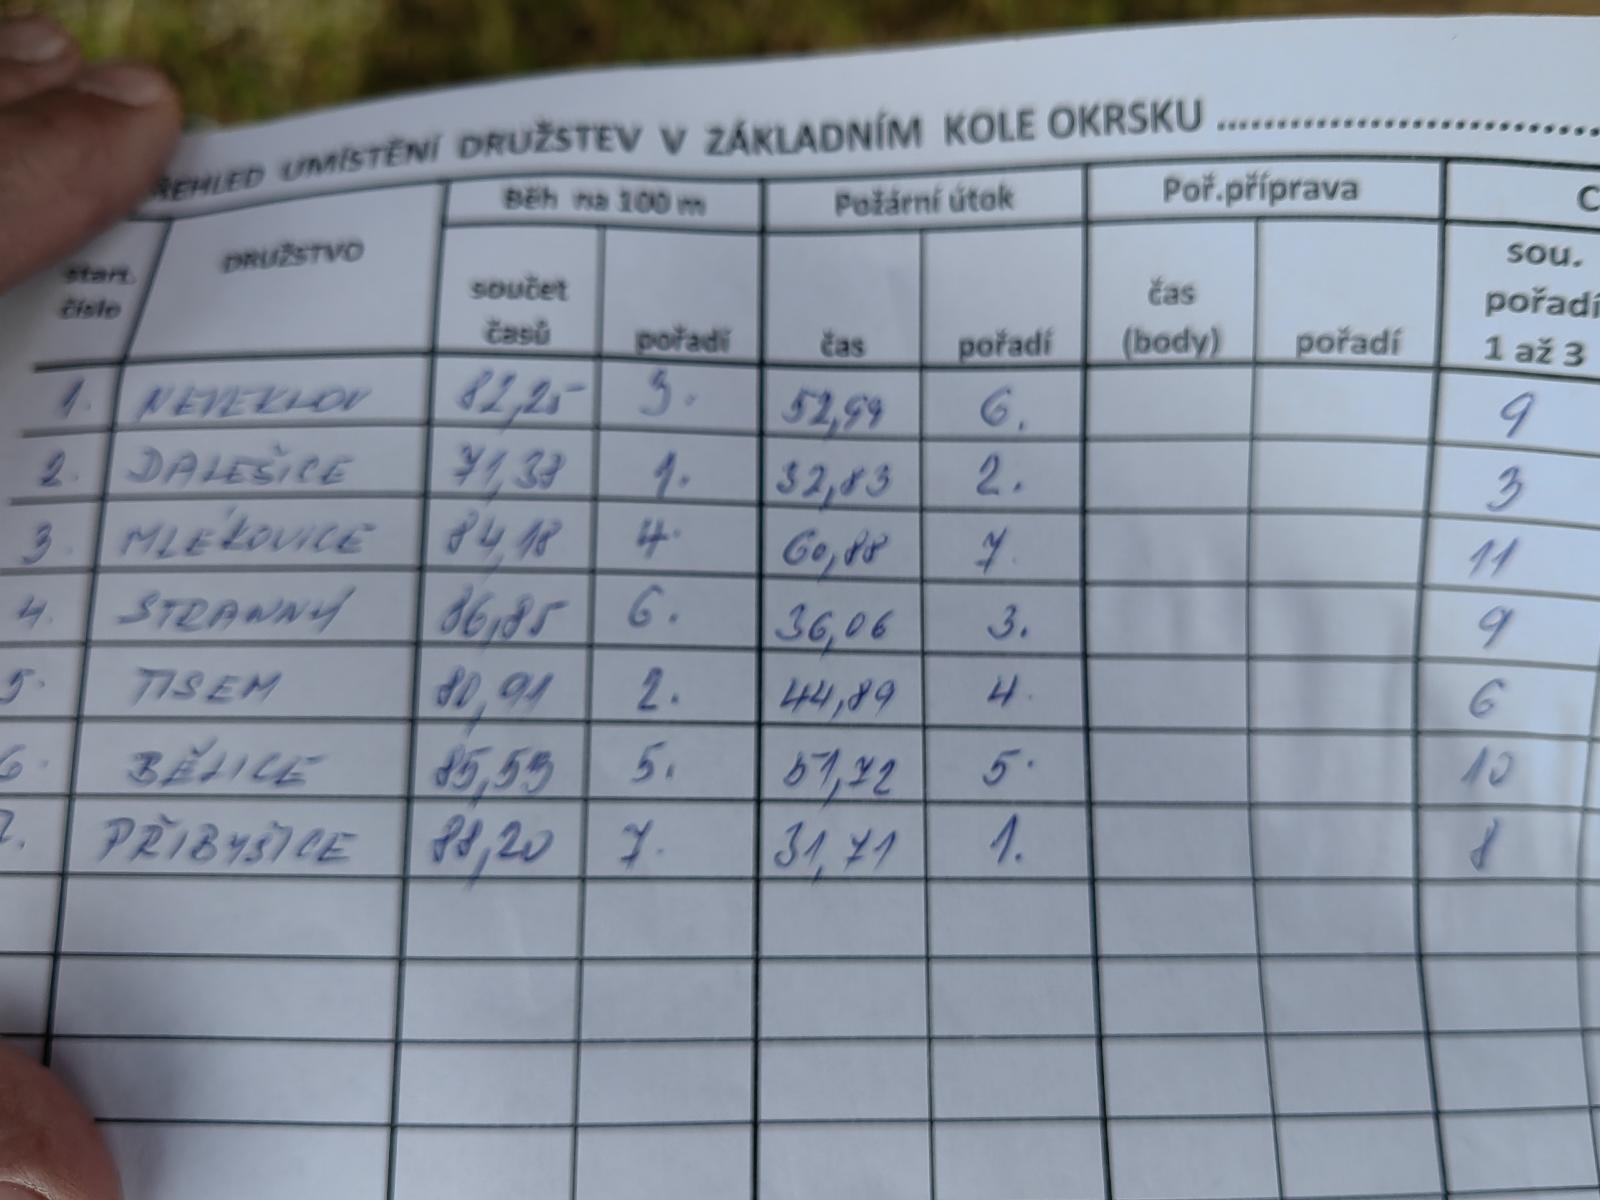 ŘEHLED UMÍSTĚNÍ DRUŽSTEV V ZÁKLADNÍM KOLE OKRSKU ..............................
start. číslo DRUŽSTVO Běh na 100 m Požární útok Poř.příprava C
součet časů pořadí čas pořadí čas (body) pořadí sou. pořadí 1 až 3
1. NETVEKLOV 82,25 3. 52,99 6. 9
2. DALEŠICE 71,38 1. 32,83 2. 3
3. MLÉKOVICE 84,18 4. 60,88 7. 11
4. STRANNÝ 86,85 6. 36,06 3. 9
5. TISEM 80,91 2. 44,89 4. 6
6. BĚLICE 85,59 5. 51,72 5. 10
7. PŘIBYŠICE 88,20 7. 31,71 1. 8